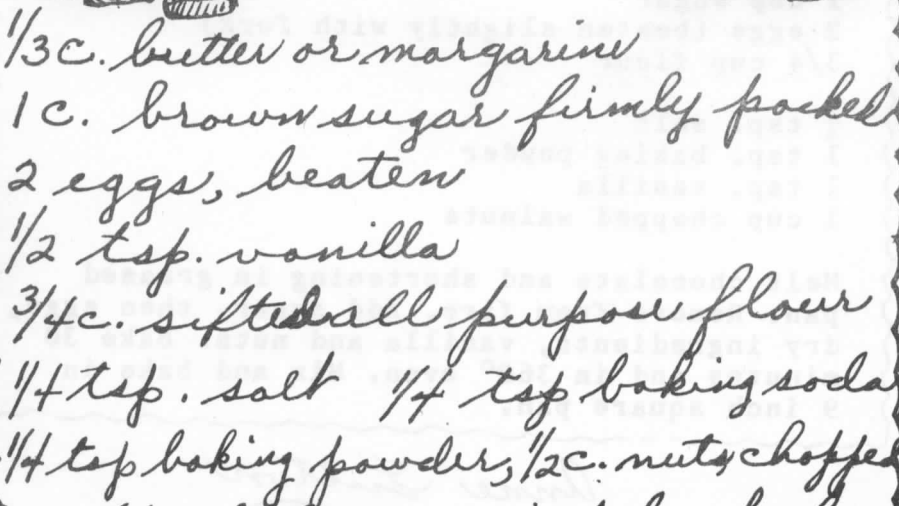 1/3 c. butter or margarine
1 c. brown sugar firmly packed
2 eggs, beaten
1/2 tsp. vanilla
3/4 c. sifted all purpose flour
1/4 tsp. salt 1/4 tsp baking soda
1/4 tsp baking powder, 1/2 c. nuts chopped